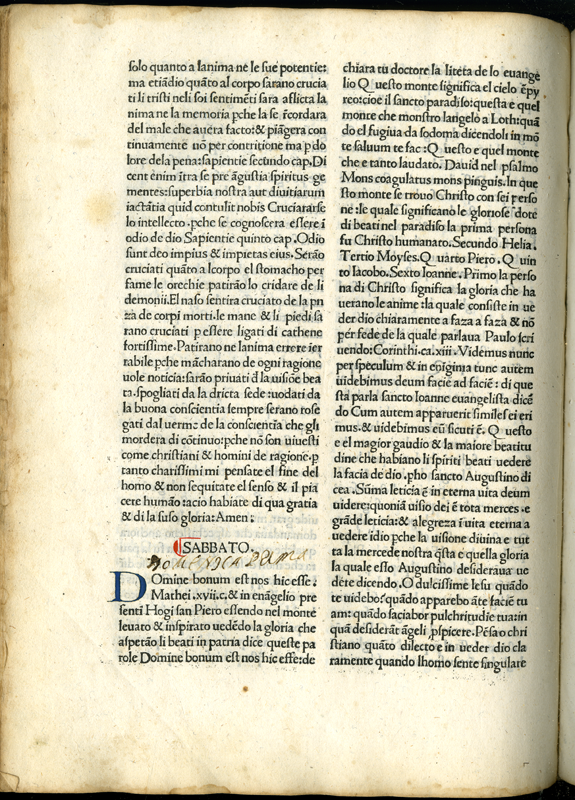 solo quanto a lanima ne le sue potentie:
ma etiãdio quãto al corpo sarano crucia
ti li tristi neli soi sentimẽti sara aflicta la
nima ne la memoria pche la se r̃cordara
del male che auera facto:& piãgera con
tinuamente nõ per contritione ma p do
lore dela pena:sapientie secũdo cap.Di
cent enim ĩtra se pre ãgustia spiritus ge
mentes:superbia nostra aut diuitiarum
iactãtia quid contulit nobis Cruciararse
lo intellecto .pche se cognoscera essere ĩ
odio de dio Sapientie quinto cap.Odio
sunt deo impius & impietas eius.Serão
cruciati quãto a lcorpo el stomacho per
fame le orechie patirão lo cridare de li
demonii.El naso sentira cruciato de la pu
za de corpi morti.le mane & li piedi sa
rano cruciati p essere ligati di cathene
fortissime.Patirano ne lanima errere ĩer
rabile pche mãcharano de ogni ragione
uole noticia:sarão priuati d̃ la uisiõe bea
ta.spogliati da la dricta sede:uodati da
la buona conscientia sempre serano rose
gati dal uerme de la conscientia che gli
mordera di cõtinuo:pche nõ son uiuesti
come christiani & homini de ragione.p
tanto charissimi mi pensate el fine del
homo & non sequitate el senso & il pia
cere humão :acio habiate di qua gratia
& di la suso gloria:Amen:
SABBATO.
Domenica
Domine bonum est nos hic esse.
Mathei.xvii.c.& in euãgelio pre
senti Hogi san Piero essendo nel monte
leuato & inspirato uedẽdo la gloria che
aspetão li beati in patria dice queste pa
role Domine bonum est nos hic esse:de
chiara tu doctore la liteta de lo euange
lio Questo monte significa el cielo ẽpy
reo:cioe il sancto paradiso:questa e quel
monte che monstro langelo a Loth:quã
do el fugiua da sodoma dicendoli in mõ
te saluum te fac :Questo e quel monte
che e tanto laudato. Dauid nel psalmo
Mons coagulatus mons pinguis.In que
sto monte se trouo Christo con sei perso
ne :le quale significano le gloriose dote
di beati nel paradiso la prima persona
fu Christo humanato.Secundo Helia.
Tertio Moyses.Quarto Piero.Quin
to Iacobo.Sexto Ioanne.Primo la perso
na di Christo significa la gloria che ha
uerano le anime :la quale consiste in ue
der dio chiaramente a faza a faza & nõ
per fede de la quale parlaua Paulo scri
uendo:Corinthi.ca.xiii.Videmus nunc
per speculum & in enigma tunc autem
uidebimus deum faciẽ ad faciẽ : di que
sta parla sancto Ioanne euangelista dicẽ
do Cum autem apparuerit similes ei eri
mus.& uidebimus eũ sicuti ẽ. Questo
e el magior gaudio & la maiore beatitu
dine che habiano li spiriti beati uedere
la facia de dio .pho sancto Augustino di
cea .Sũma leticia ẽ in eterna uita deum
uidere:quoniã uisio dei ẽ tota merces .e
grãde leticia:& alegreza ĩ uita eterna a
uedere idio pche la uisione diuina e tut
ta la mercede nostra q̃sta e quella gloria
la quale esso Augustino desideraua ue
dere dicendo.O dulcissime Iesu quãdo
te uidebo?quãdo apparebo ãte faciẽ tu
am: quãdo saciabor pulchritudĩe tua:in
quã desiderãt ãgeli pspicere.Pẽsa o chri
stiano quãto dilecto e in ueder dio cla
ramente quando lhomo sente singulare